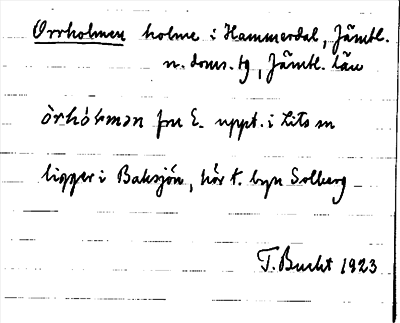 Orrholmen holme i Hammerdal, Jämtl.
n. doms. tg, Jämtl. län
òrhól̀mən fru E. uppt. i Lits sn
ligger i Baksjön, hör t. byn Solberg
T. Bucht 1923